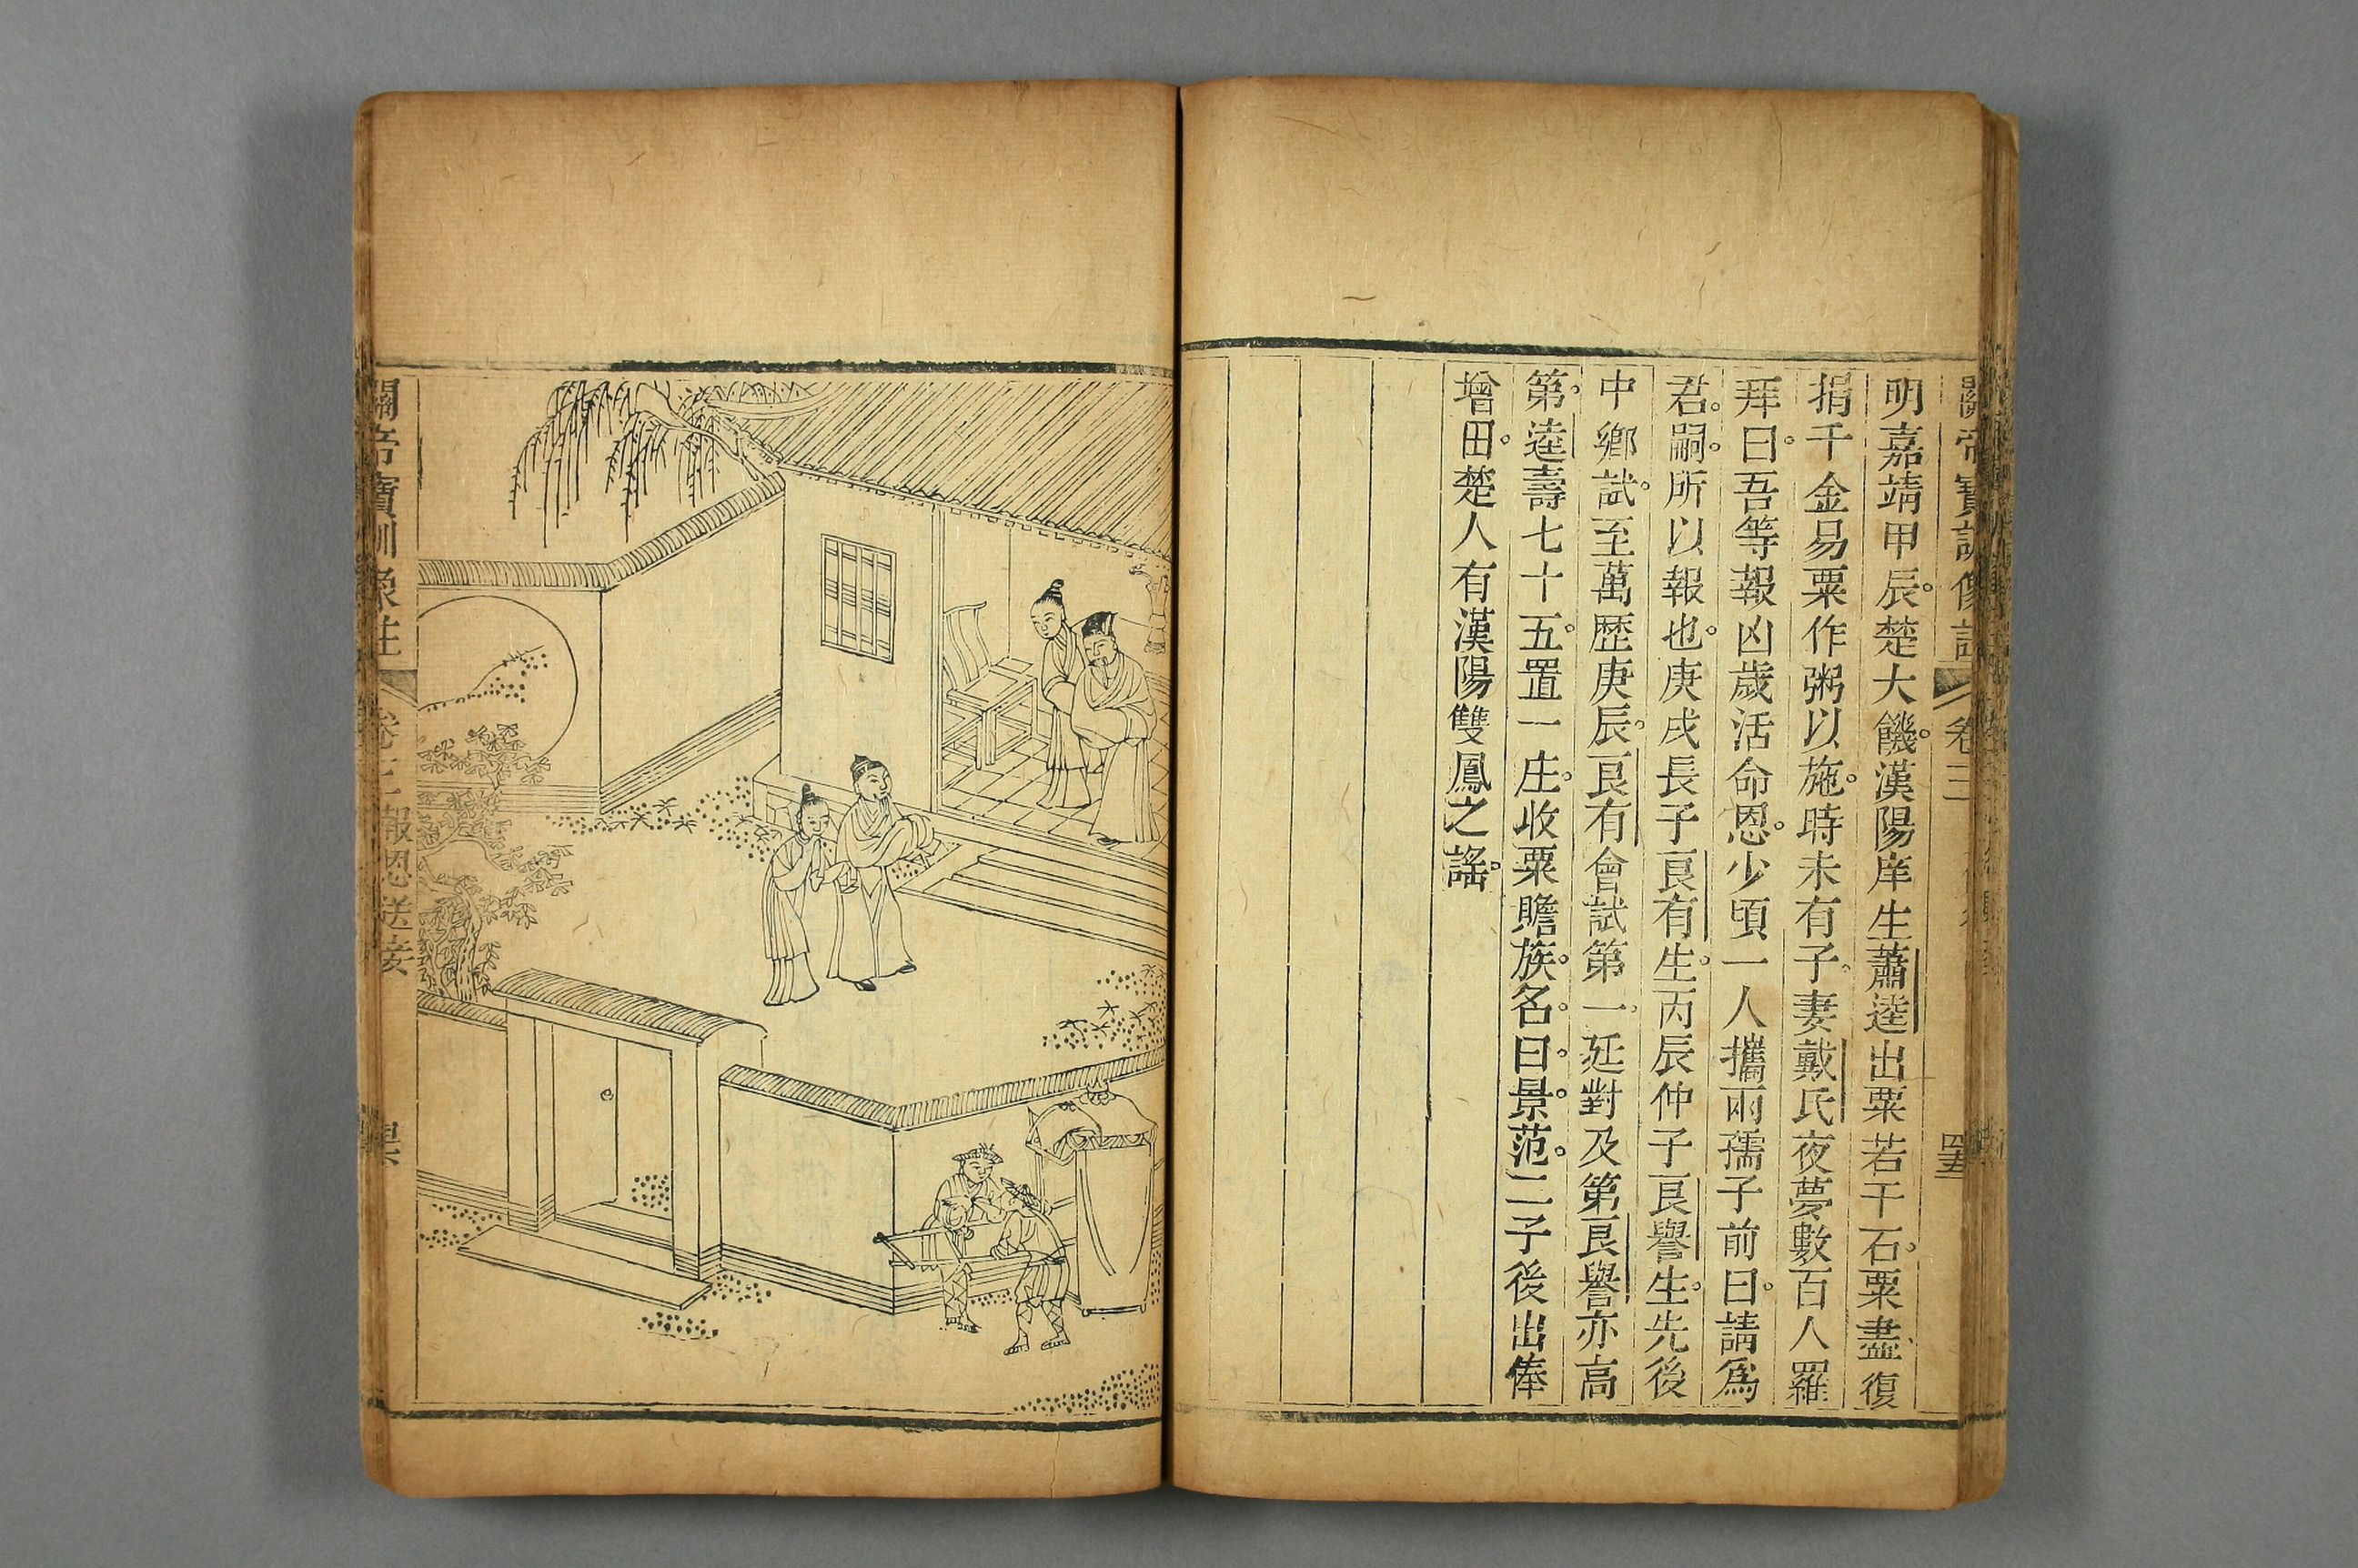 關帝寶訓像註 卷三 四五
明嘉靖甲辰楚大饑漢陽庠生蕭逵出粟若干石粟盡復
捐千金易粟作粥以施時未有子妻戴氏夜夢數百人羅
拜曰吾等報凶歲活命恩少頃一人攜兩孺子前曰請爲
君嗣所以報也庚戌長子良有生丙辰仲子良譽生先後
中鄉試至萬歷庚辰良有會試第一延對及第良譽亦高
第逵壽七十五置一庄收粟贍族名曰景范二子後出俸
增田楚人有漢陽雙鳳之謠
關帝寶訓像註 卷三 報恩送妾